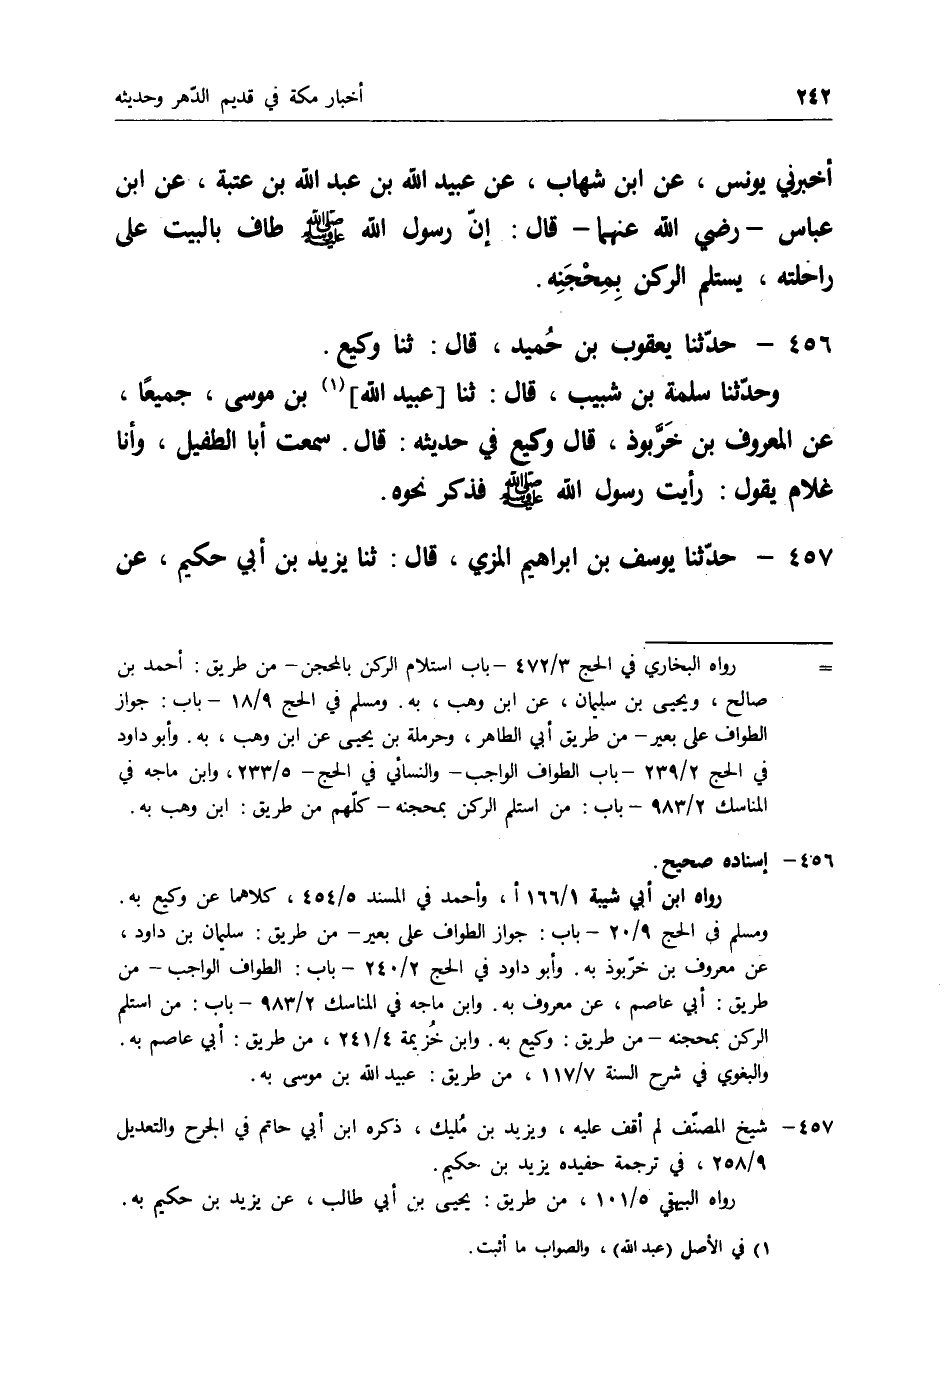 ٢٤٢ أخبار مكة في قديم الدّهر وحديثه
أخبرني يونس ، عن ابن شهاب ، عن عبيد الله بن عبد الله بن عتبة ، عن ابن
عباس –رضي الله عنهما– قال : إنّ رسول الله ﷺ طاف بالبيت على
راحلته ، يستلم الركن بِمِحْجَنِه .
٤٥٦ – حدّثنا يعقوب بن حُميد ، قال : ثنا وكيع .
وحدّثنا سلمة بن شبيب ، قال : ثنا [عبيد الله](١) بن موسى ، جميعًا ،
عن المعروف بن خَرَّبوذ ، قال وكيع في حديثه : قال . سمعت أبا الطفيل ، وأنا
غلام يقول : رأيت رسول الله ﷺ فذكر نحوه .
٤٥٧ – حدّثنا يوسف بن ابراهيم المزي ، قال : ثنا يزيد بن أبي حكيم ، عن
= رواه البخاري في الحج ٤٧٢/٣ –باب استلام الركن بالمحجن– من طريق : أحمد بن
صالح ، ويحيى بن سليمان ، عن ابن وهب ، به . ومسلم في الحج ١٨/٩ –باب : جواز
الطواف على بعير– من طريق أبي الطاهر ، وحرملة بن يحيى عن ابن وهب ، به . وأبو داود
في الحج ٢٣٩/٢ –باب الطواف الواجب– والنسائي في الحج– ٢٣٣/٥ ، وابن ماجه في
المناسك ٩٨٣/٢ –باب : من استلم الركن بمحجنه– كلّهم من طريق : ابن وهب به .
٤٥٦– إسناده صحيح .
رواه ابن أبي شيبة ١٦٦/١ أ ، وأحمد في المسند ٤٥٤/٥ ، كلاهما عن وكيع به .
ومسلم في الحج ٢٠/٩ –باب : جواز الطواف على بعير– من طريق : سليمان بن داود ،
عن معروف بن خرّبوذ به . وأبو داود في الحج ٢٤٠/٢ –باب : الطواف الواجب– من
طريق : أبي عاصم ، عن معروف به . وابن ماجه في المناسك ٩٨٣/٢ –باب : من استلم
الركن بمحجنه –من طريق : وكيع به . وابن خُزيمة ٢٤١/٤ ، من طريق : أبي عاصم به .
والبغوي في شرح السنة ١١٧/٧ ، من طريق : عبيد الله بن موسى به .
٤٥٧– شيخ المصنّف لم أقف عليه ، ويزيد بن مُليك ، ذكره ابن أبي حاتم في الجرح والتعديل
٢٥٨/٩ ، في ترجمة حفيده يزيد بن حكيم .
رواه البيهقي ١٠١/٥ ، من طريق : يحيى بن أبي طالب ، عن يزيد بن حكيم به .
١) في الأصل (عبد الله) ، والصواب ما أثبت .